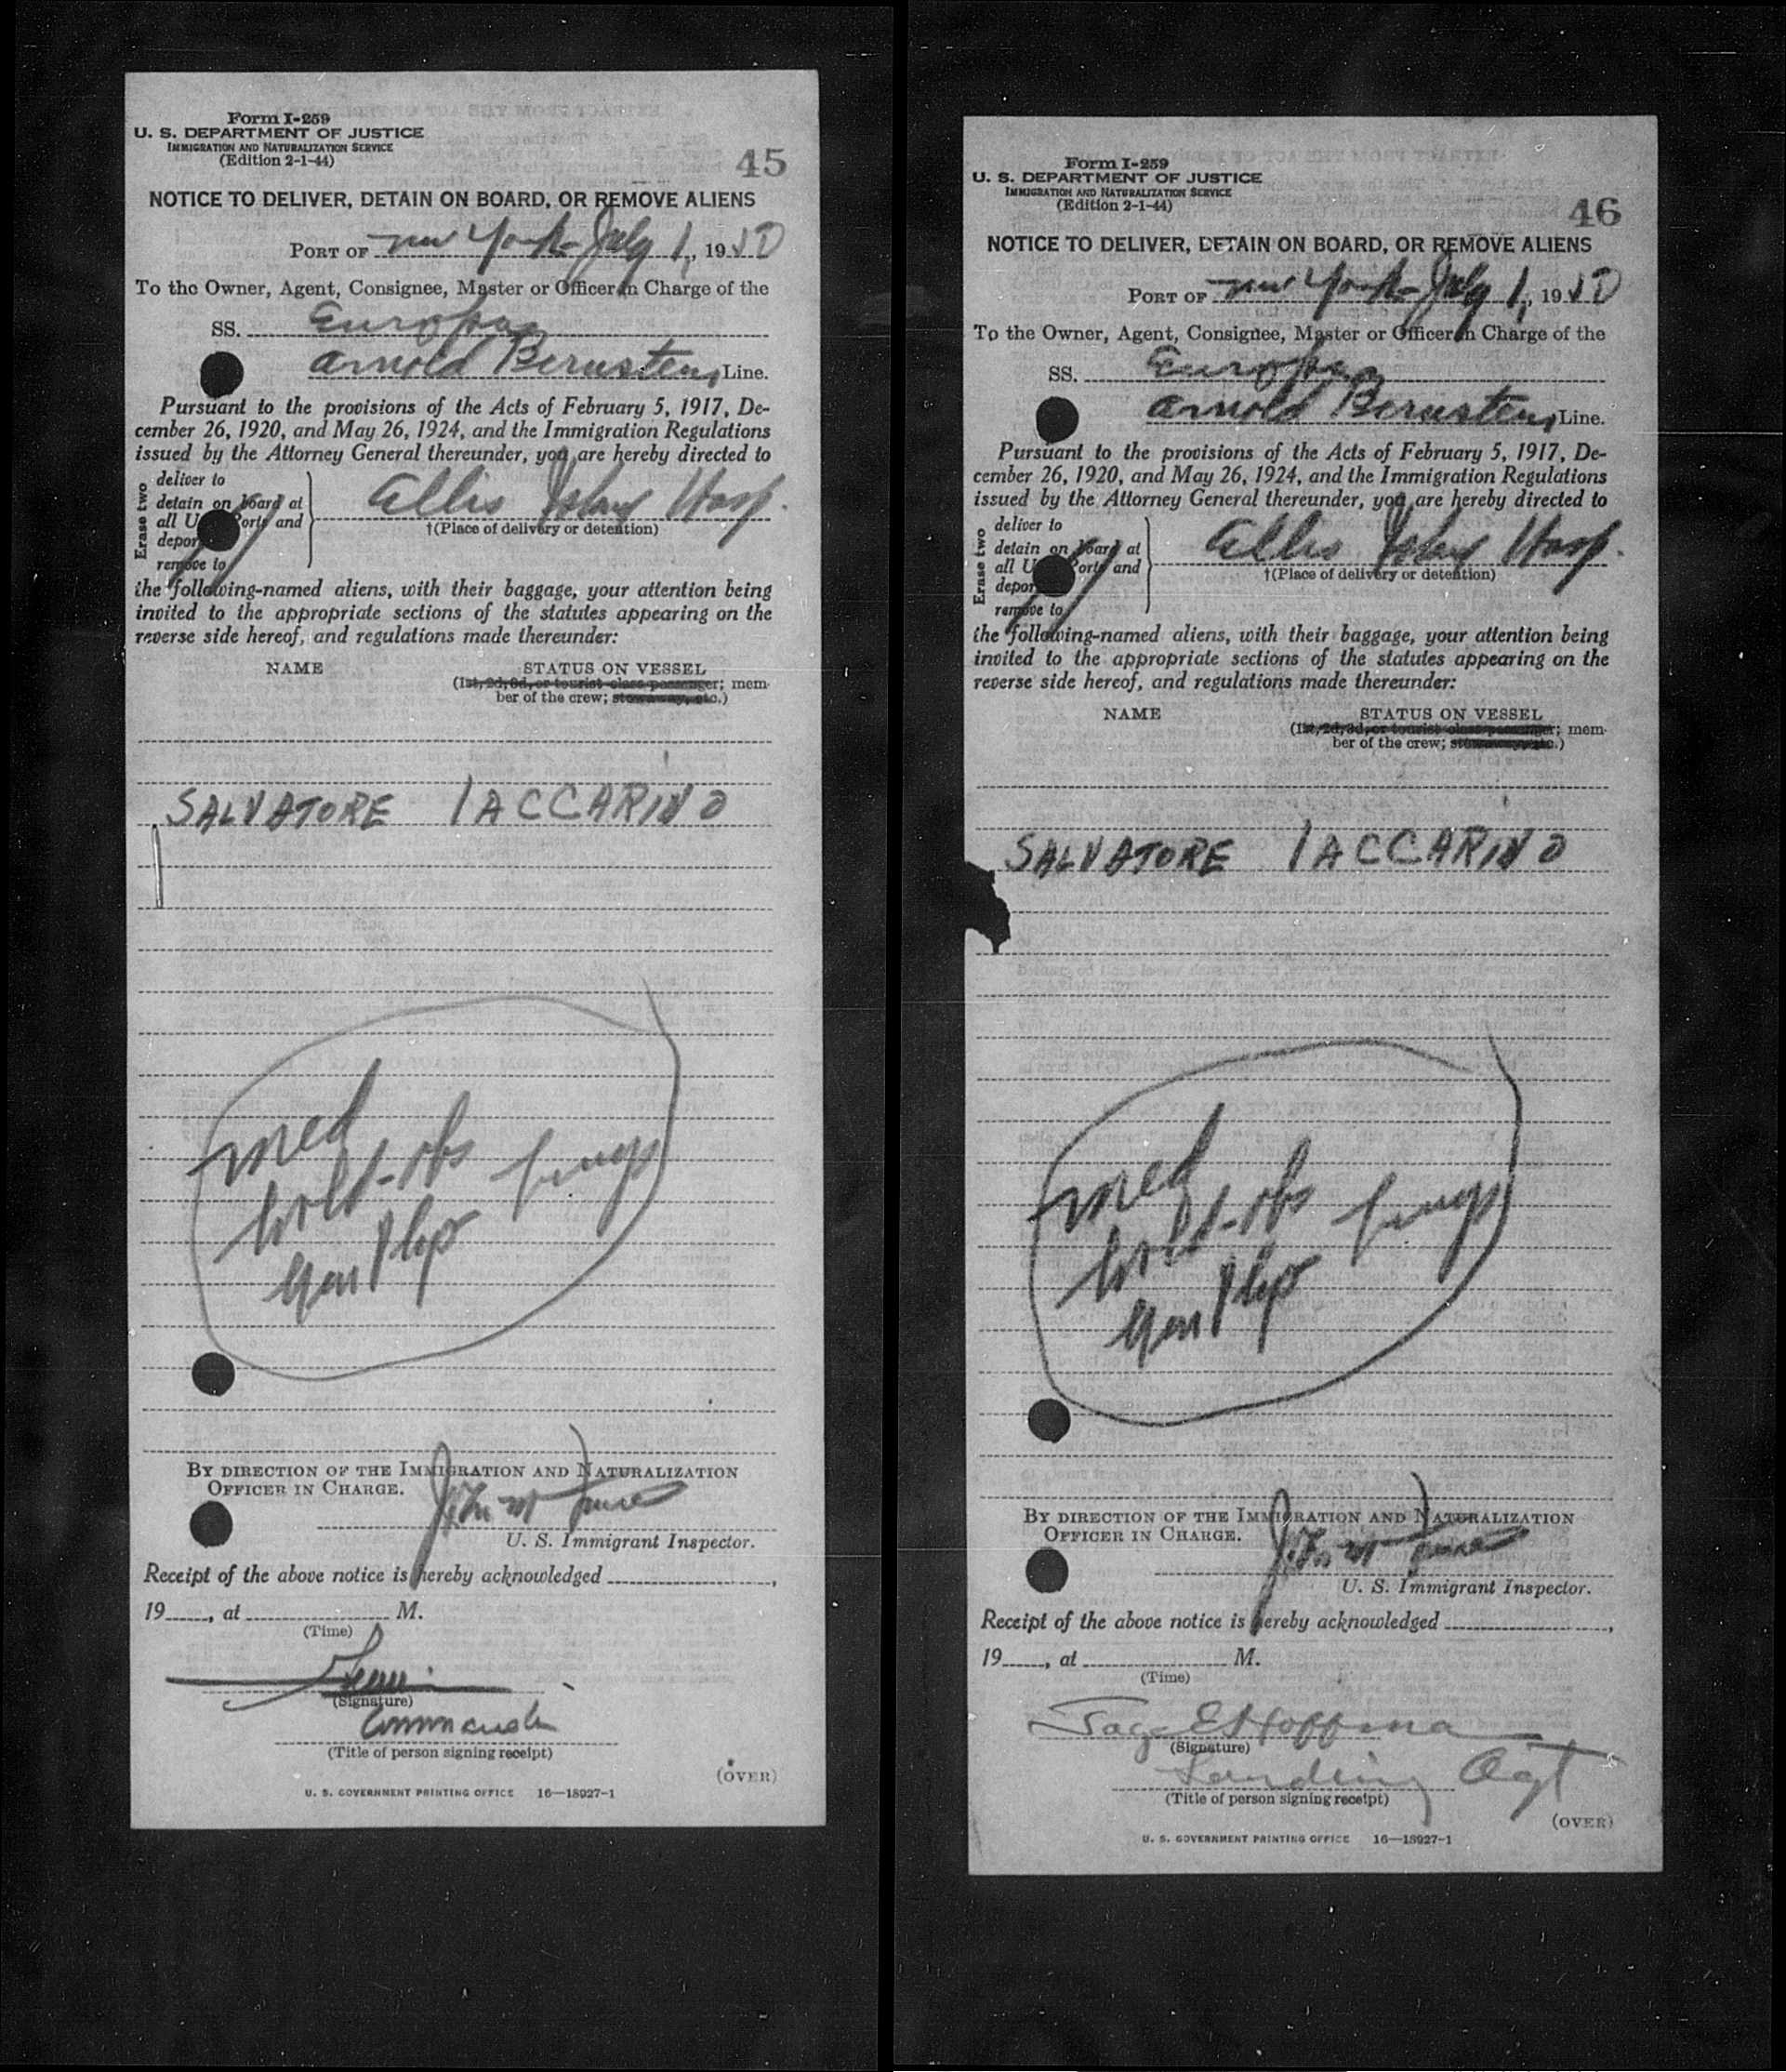 Form I-259
U. S. DEPARTMENT OF JUSTICE
IMMIGRATION AND NATURALIZATION SERVICE
(Edition 2-1-44)
45
NOTICE TO DELIVER, DETAIN ON BOARD, OR REMOVE ALIENS
PORT OF New York July 1, 1950
To the Owner, Agent, Consignee, Master or Officer in Charge of the
SS. Europa
Arnold Bernstein, Line.
Pursuant to the provisions of the Acts of February 5, 1917, De-
cember 26, 1920, and May 26, 1924, and the Immigration Regulations
issued by the Attorney General thereunder, you are hereby directed to
Erase two
deliver to
detain on board at
all U Ports and
depor
remove to
Ellis Island Hosp.
†(Place of delivery or detention)
the following-named aliens, with their baggage, your attention being
invited to the appropriate sections of the statutes appearing on the
reverse side hereof, and regulations made thereunder:
NAME STATUS ON VESSEL
(1st, 2d, 3d, or tourist class passenger; mem-
ber of the crew; stowaway, etc.)
SALVATORE IACCARINO
med
hold-obs lungs
BY DIRECTION OF THE IMMIGRATION AND NATURALIZATION
OFFICER IN CHARGE.
John M
U. S. Immigrant Inspector.
Receipt of the above notice is hereby acknowledged ,
19 , at M.
(Time)
(Signature)
(Title of person signing receipt)
(OVER)
U. S. GOVERNMENT PRINTING OFFICE 16—18927-1
Form I-259
U. S. DEPARTMENT OF JUSTICE
IMMIGRATION AND NATURALIZATION SERVICE
(Edition 2-1-44)
46
NOTICE TO DELIVER, DETAIN ON BOARD, OR REMOVE ALIENS
PORT OF New York July 1, 1950
To the Owner, Agent, Consignee, Master or Officer in Charge of the
SS. Europa
Arnold Bernstein, Line.
Pursuant to the provisions of the Acts of February 5, 1917, De-
cember 26, 1920, and May 26, 1924, and the Immigration Regulations
issued by the Attorney General thereunder, you are hereby directed to
Erase two
deliver to
detain on board at
all U Ports and
depor
remove to
Ellis Island Hosp.
†(Place of delivery or detention)
the following-named aliens, with their baggage, your attention being
invited to the appropriate sections of the statutes appearing on the
reverse side hereof, and regulations made thereunder:
NAME STATUS ON VESSEL
(1st, 2d, 3d, or tourist class passenger; mem-
ber of the crew; stowaway, etc.)
SALVATORE IACCARINO
med
hold-obs lungs
BY DIRECTION OF THE IMMIGRATION AND NATURALIZATION
OFFICER IN CHARGE.
John M
U. S. Immigrant Inspector.
Receipt of the above notice is hereby acknowledged ,
19 , at M.
(Time)
E Hoffma
(Signature)
Landing Agt
(Title of person signing receipt)
(OVER)
U. S. GOVERNMENT PRINTING OFFICE 16—18927-1